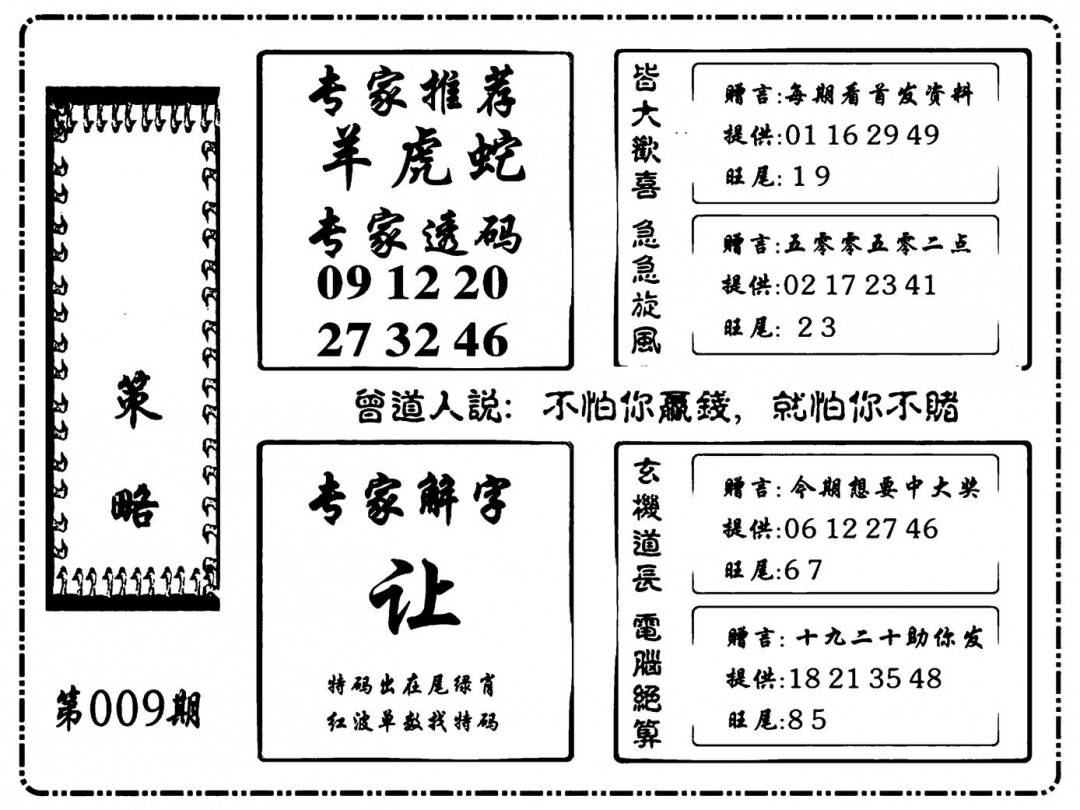 策略
第009期
专家推荐
羊虎蛇
专家透码
09 12 20
27 32 46
皆大歡喜
赠言:每期看首发资料
提供:01 16 29 49
旺尾: 1 9
急急旋風
赠言:五零零五零二点
提供:02 17 23 41
旺尾: 2 3
曾道人説: 不怕你贏錢, 就怕你不賭
专家解字
让
特码出在尾绿肖
红波单数找特码
玄機道長
赠言: 今期想要中大奖
提供:06 12 27 46
旺尾:6 7
電腦絕算
赠言: 十九二十助你发
提供:18 21 35 48
旺尾:8 5